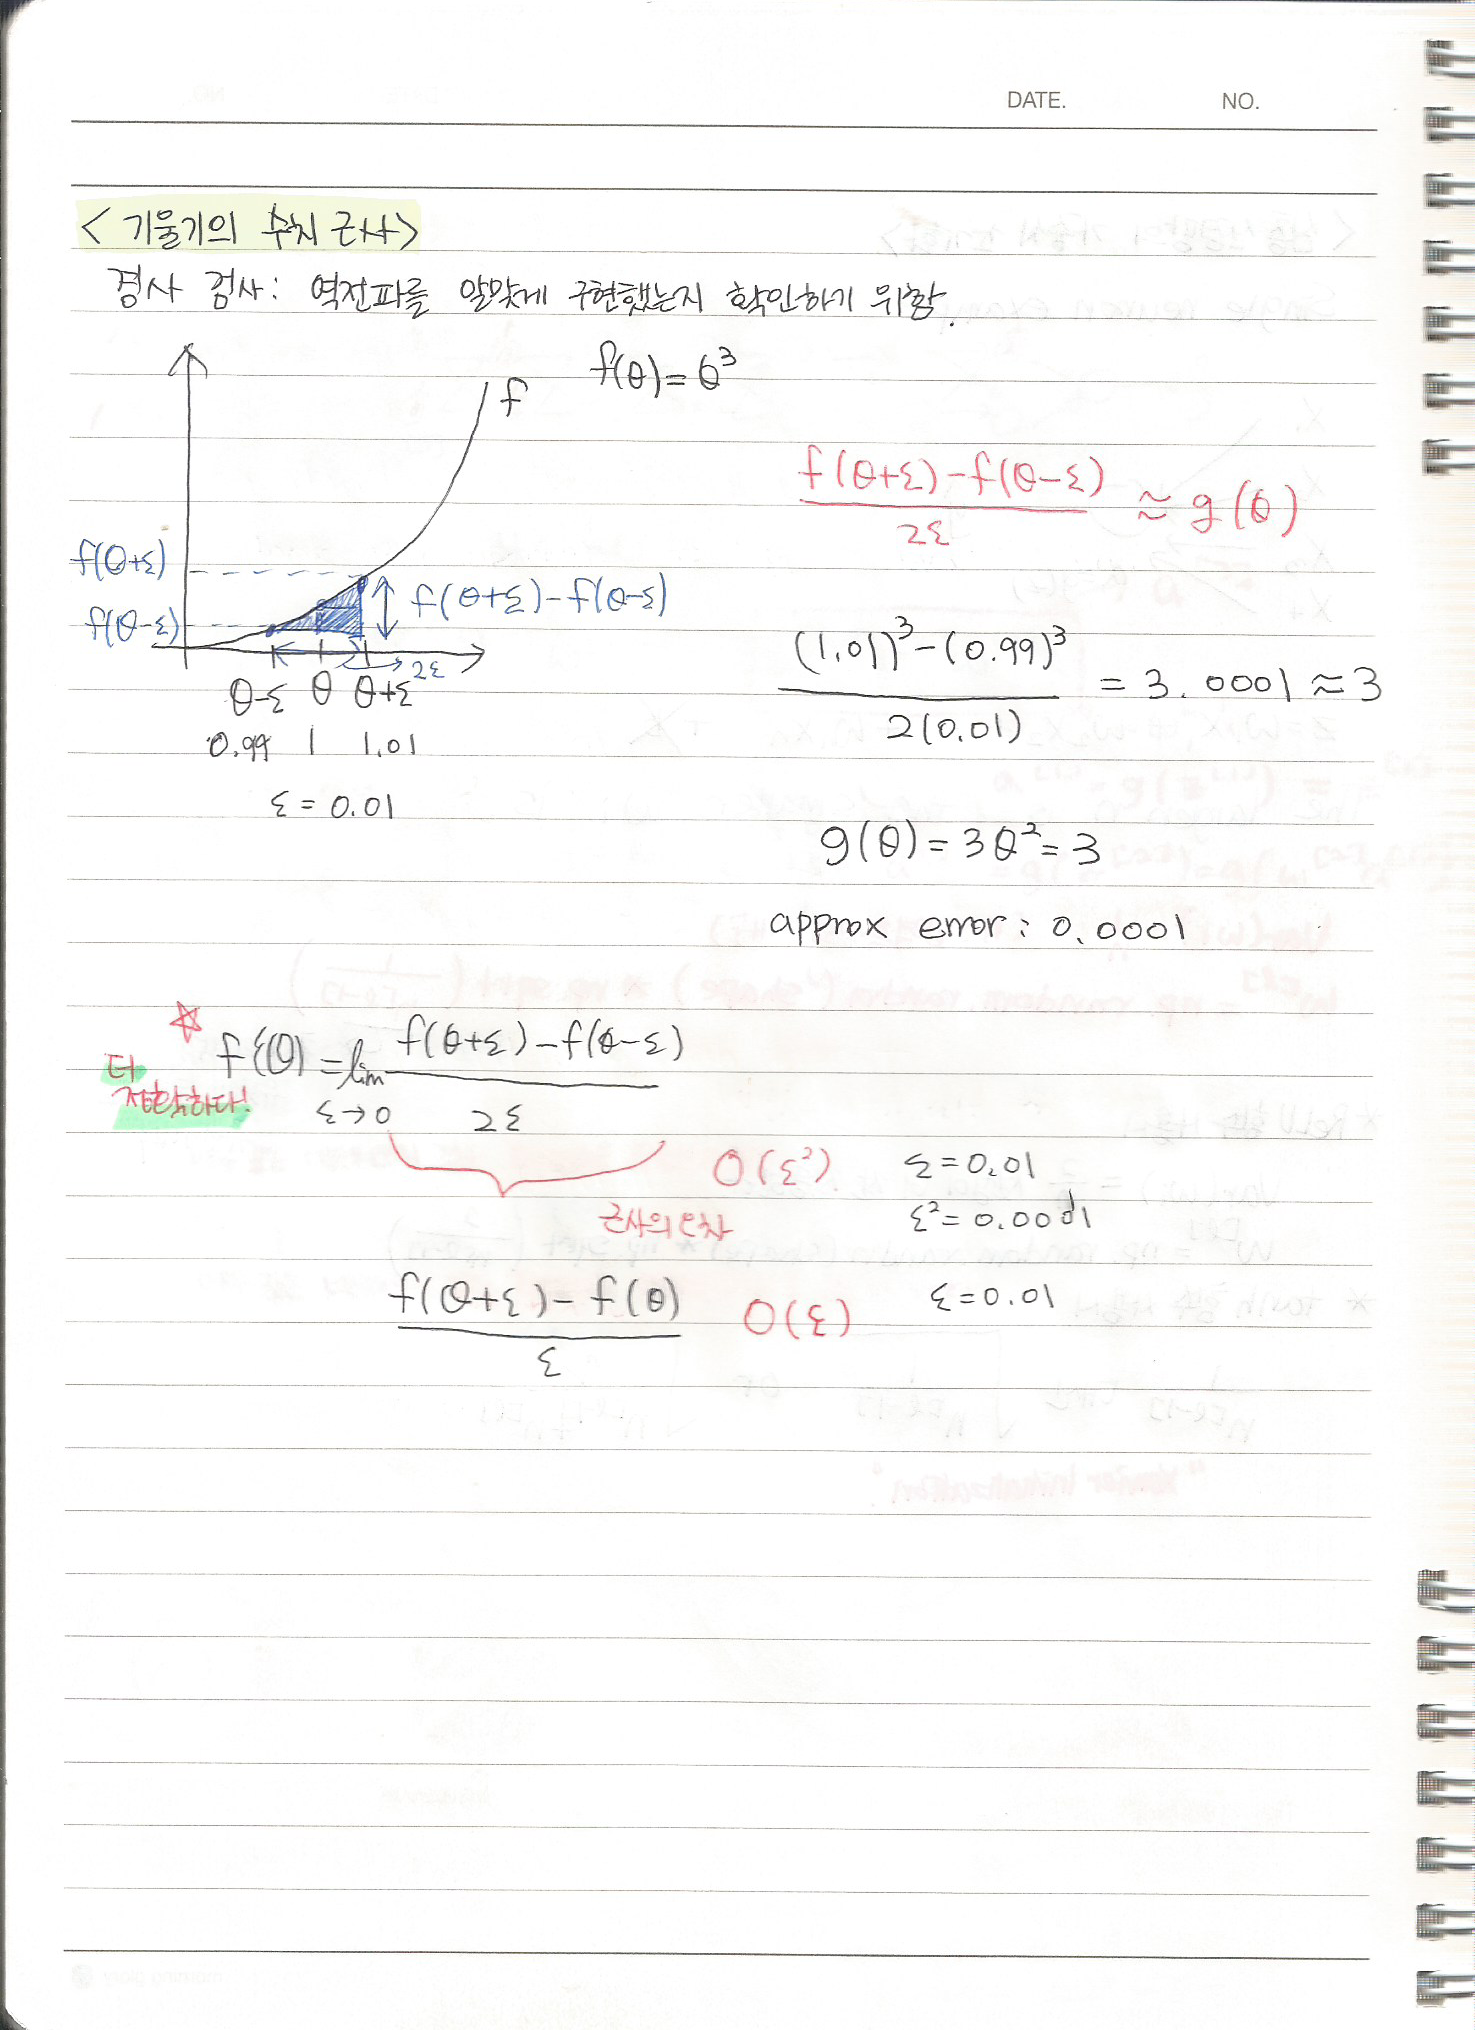 DATE. NO.
<기울기의 수치 근사>
경사 검사: 역전파를 알맞게 구현했는지 확인하기 위함.
f(θ)=θ³
f
f(θ+ε)-f(θ-ε) / 2ε ≈ g(θ)
f(θ+ε)
f(θ-ε)
f(θ+ε)-f(θ-ε)
2ε
θ-ε θ θ+ε
0.99 1 1.01
ε=0.01
(1.01)³-(0.99)³ / 2(0.01) = 3.0001≈3
g(θ)=3θ²=3
approx error: 0.0001
☆ 더 정확하다!
f'(θ)=lim ε→0 f(θ+ε)-f(θ-ε) / 2ε
O(ε²) ε=0.01
근사의 오차 ε²=0.0001
f(θ+ε)-f(θ) / ε O(ε) ε=0.01